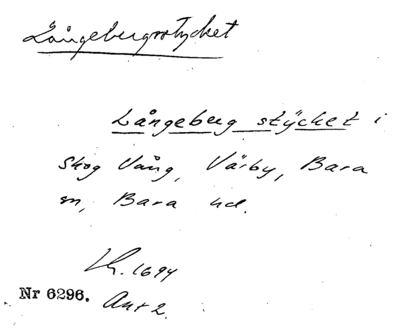 Långebergsstycket
Långeberg stÿcket i
Skog Vång, Värby, Bara
sn, Bara hd.
Lh. 1694
Nr 6296. Ant 2.